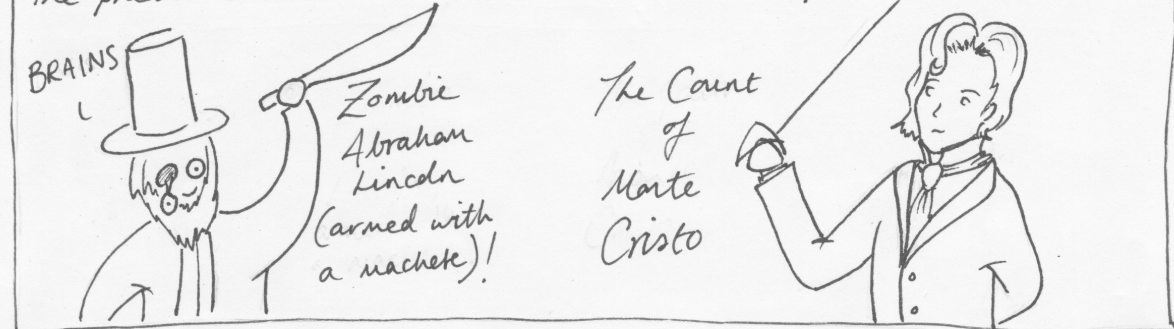 the
BRAINS
Zombie
Abraham
Lincoln
(armed with
a machete)!
The Count
of
Monte
Cristo